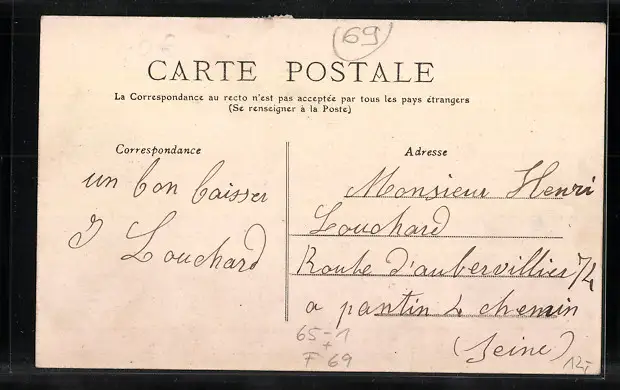 69
CARTE POSTALE
La Correspondance au recto n'est pas acceptée par tous les pays étrangers
(Se renseigner à la Poste)
Correspondance
un bon baisser
J Louchard
Adresse
Monsieur Henri
Louchard
Route d'aubervillier 74
a pantin 4 chemin
(Seine)
65-1
+
F 69
12,-